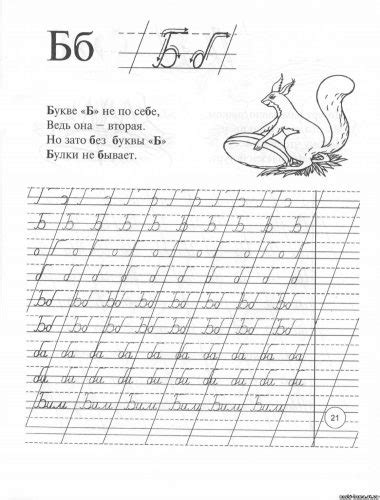 Бб Б б
Букве «Б» не по себе,
Ведь она – вторая.
Но зато без буквы «Б»
Булки не бывает.
Б Б Б Б Б Б Б Б Б Б
б б б б б б б б б б
Бб Бб Бб Бб Бб Бб Бб Бб
Бб Бб Бб Бб Бб Бб Бб Бб
ба ба ба ба ба ба ба ба ба ба
би би би би би би би би би би
Бим Бим Бим Бим Бим Бим
21